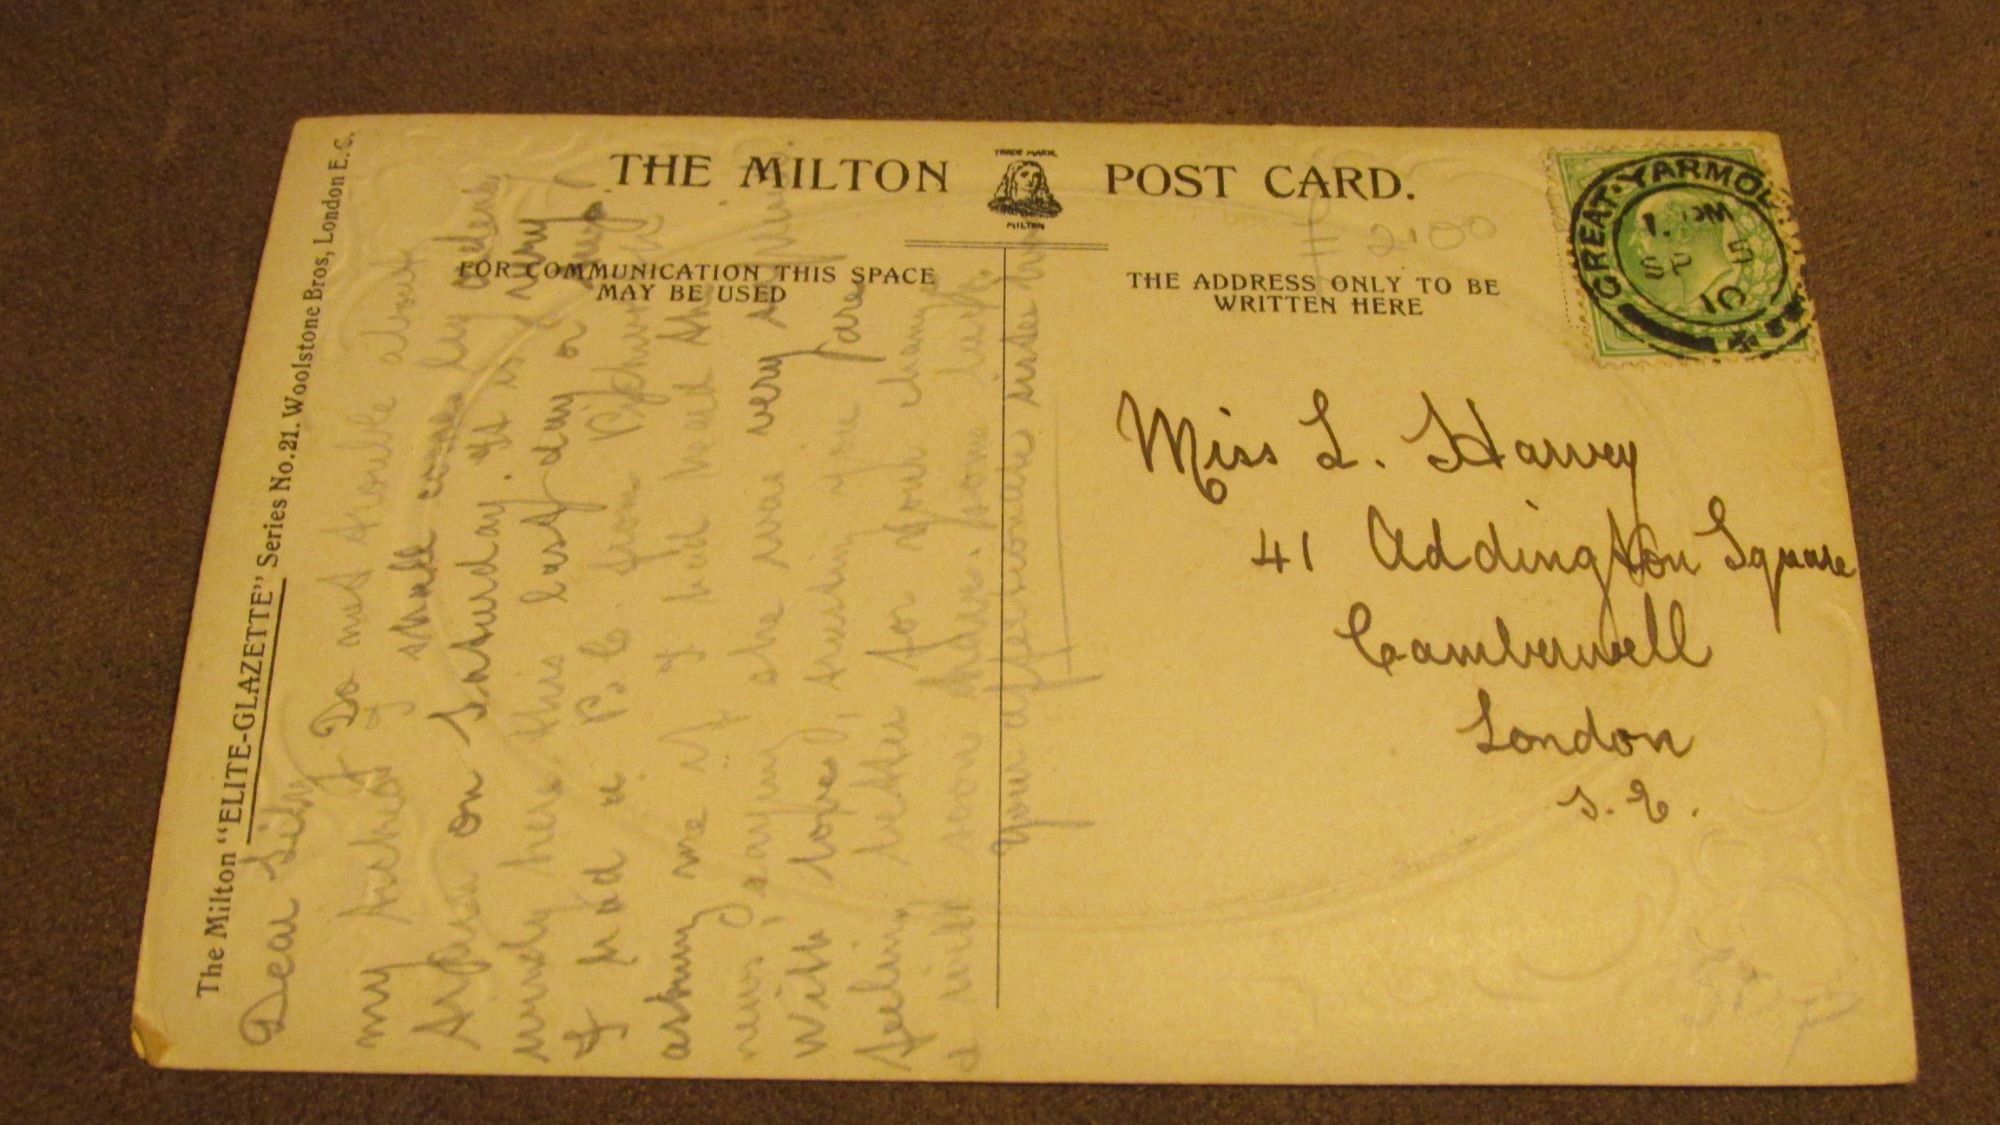 The Milton "ELITE-GLAZETTE" Series No.21. Woolstone Bros, London E.C.
THE MILTON
TRADE MARK
MILTON
POST CARD.
FOR COMMUNICATION THIS SPACE
MAY BE USED
THE ADDRESS ONLY TO BE
WRITTEN HERE
GREAT YARMOU
1. PM
SP 5
10
Miss L. Harvey
41 Addington Square
Camberwell
London
S. E.
Dear Lily
Do not trouble about
my ticket I shall come by
on Saturday. It is very
windy here this last day or
I had a P.C. from
asking me if I had heard the
news, saying she was very
With love, trusting you are
feeling better for your change
& will soon have some luck.
Your affectionate sister